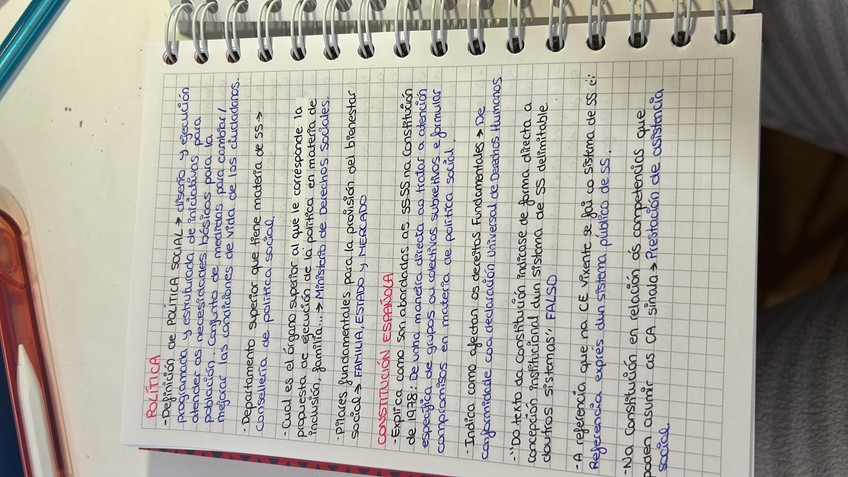 POLÍTICA
-Definición de POLÍTICA SOCIAL → diseño y ejecución
programada y estruturada de iniciativas para
atender as necesidades básicas para la
población. Conjunto de medidas para cambiar/
mejorar las condiciones de vida de los ciudadanos.
-Departamento superior que tiene materia de SS →
consellería de política social.
-Cual es el órgano superior al que le corresponde la
propuesta de ejecución de la política en materia de
inclusión, familia... → Ministerio de Derechos Sociales.
-Pilares fundamentales para la provisión del bienestar
social → FAMILIA, ESTADO y MERCADO
CONSTITUCIÓN ESPAÑOLA
-Explica como son abordadas as SS.SS na constitución
de 1978: De unha maneira directa ao tratar a atención
específica de grupos ou colectivos subxetivos e formular
compromisos en materia de política social.
-Indica como afectan os dereitos Fundamentales → De
conformidade coa declaración Universal de Derechos Humanos
-"Do texto da constitución indícase de forma directa a
concepción institucional dun sistema de SS delimitable
doutros sistemas": FALSO
-A referencia que na CE vixente se fai co sistema de SS é:
Referencia exprés dun sistema público de SS.
-Na Constitución en relación ás competencias que
poden asumir as CA sinala → Prestación de asistencia
social.